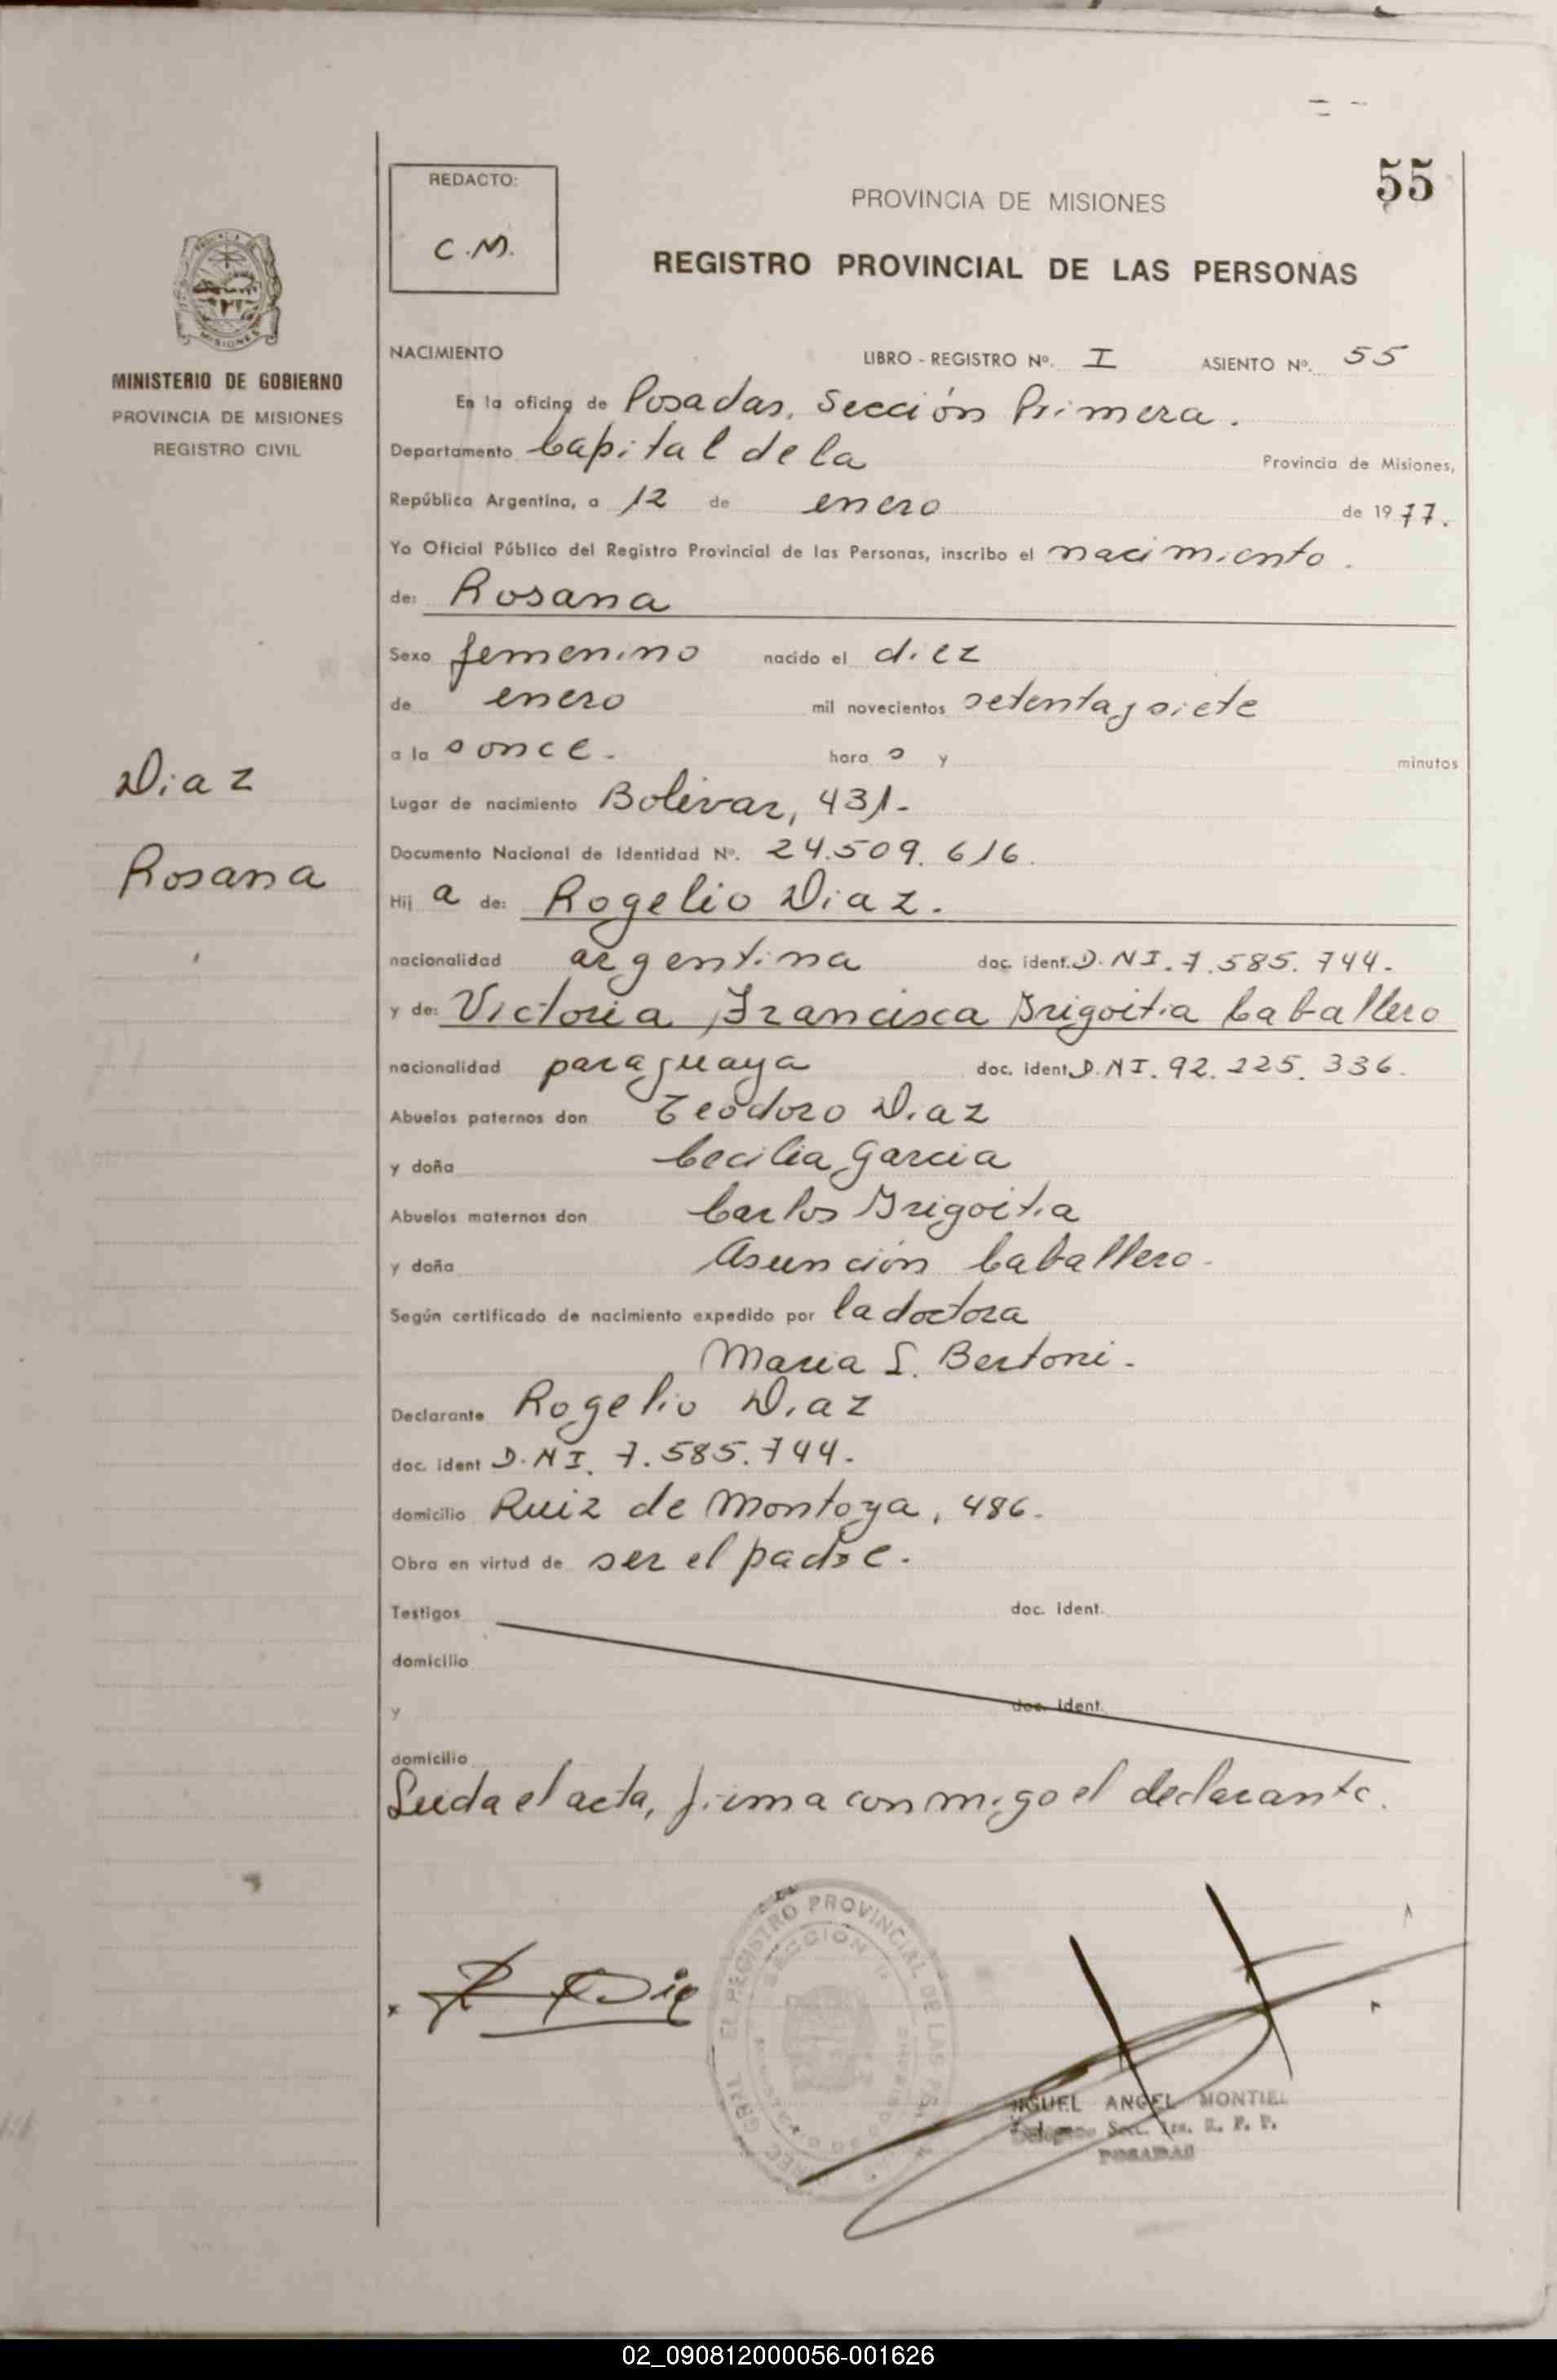 55
REDACTO:
C.M.
PROVINCIA DE MISIONES
REGISTRO PROVINCIAL DE LAS PERSONAS
MINISTERIO DE GOBIERNO
PROVINCIA DE MISIONES
REGISTRO CIVIL
Diaz
Rosana
NACIMIENTO LIBRO - REGISTRO Nº. I ASIENTO Nº. 55
En la oficina de Posadas, Sección Primera.
Departamento Capital de la Provincia de Misiones,
República Argentina, a 12 de enero de 1977.
Yo Oficial Público del Registro Provincial de las Personas, inscribo el nacimiento.
de: Rosana
Sexo femenino nacido el diez
de enero mil novecientos setenta y siete
a la s once. hora s y minutos
Lugar de nacimiento Bolívar, 431.-
Documento Nacional de Identidad Nº. 24.509.616.
Hij a de: Rogelio Diaz.
nacionalidad argentina doc. ident. D.NI. 7.585.744.
y de: Victoria Francisca Yrigoitia Caballero
nacionalidad paraguaya doc. ident. D.NI. 92.225.336.
Abuelos paternos don Teodoro Diaz
y doña Cecilia Garcia
Abuelos maternos don Carlos Yrigoitia
y doña Asunción Caballero.
Según certificado de nacimiento expedido por la doctora
Maria S. Bertoni.
Declarante Rogelio Diaz
doc. ident D.NI. 7.585.744.
domicilio Ruiz de Montoya, 486.
Obra en virtud de ser el padre.
Testigos doc. ident.
domicilio
y doc. ident.
domicilio
Leida el acta, firma conmigo el declarante.
REGISTRO PROVINCIAL DE LAS
SECCION
MIGUEL ANGEL MONTIEL
Delegado Secc. 1ra. R. P. P.
POSADAS
02_090812000056-001626